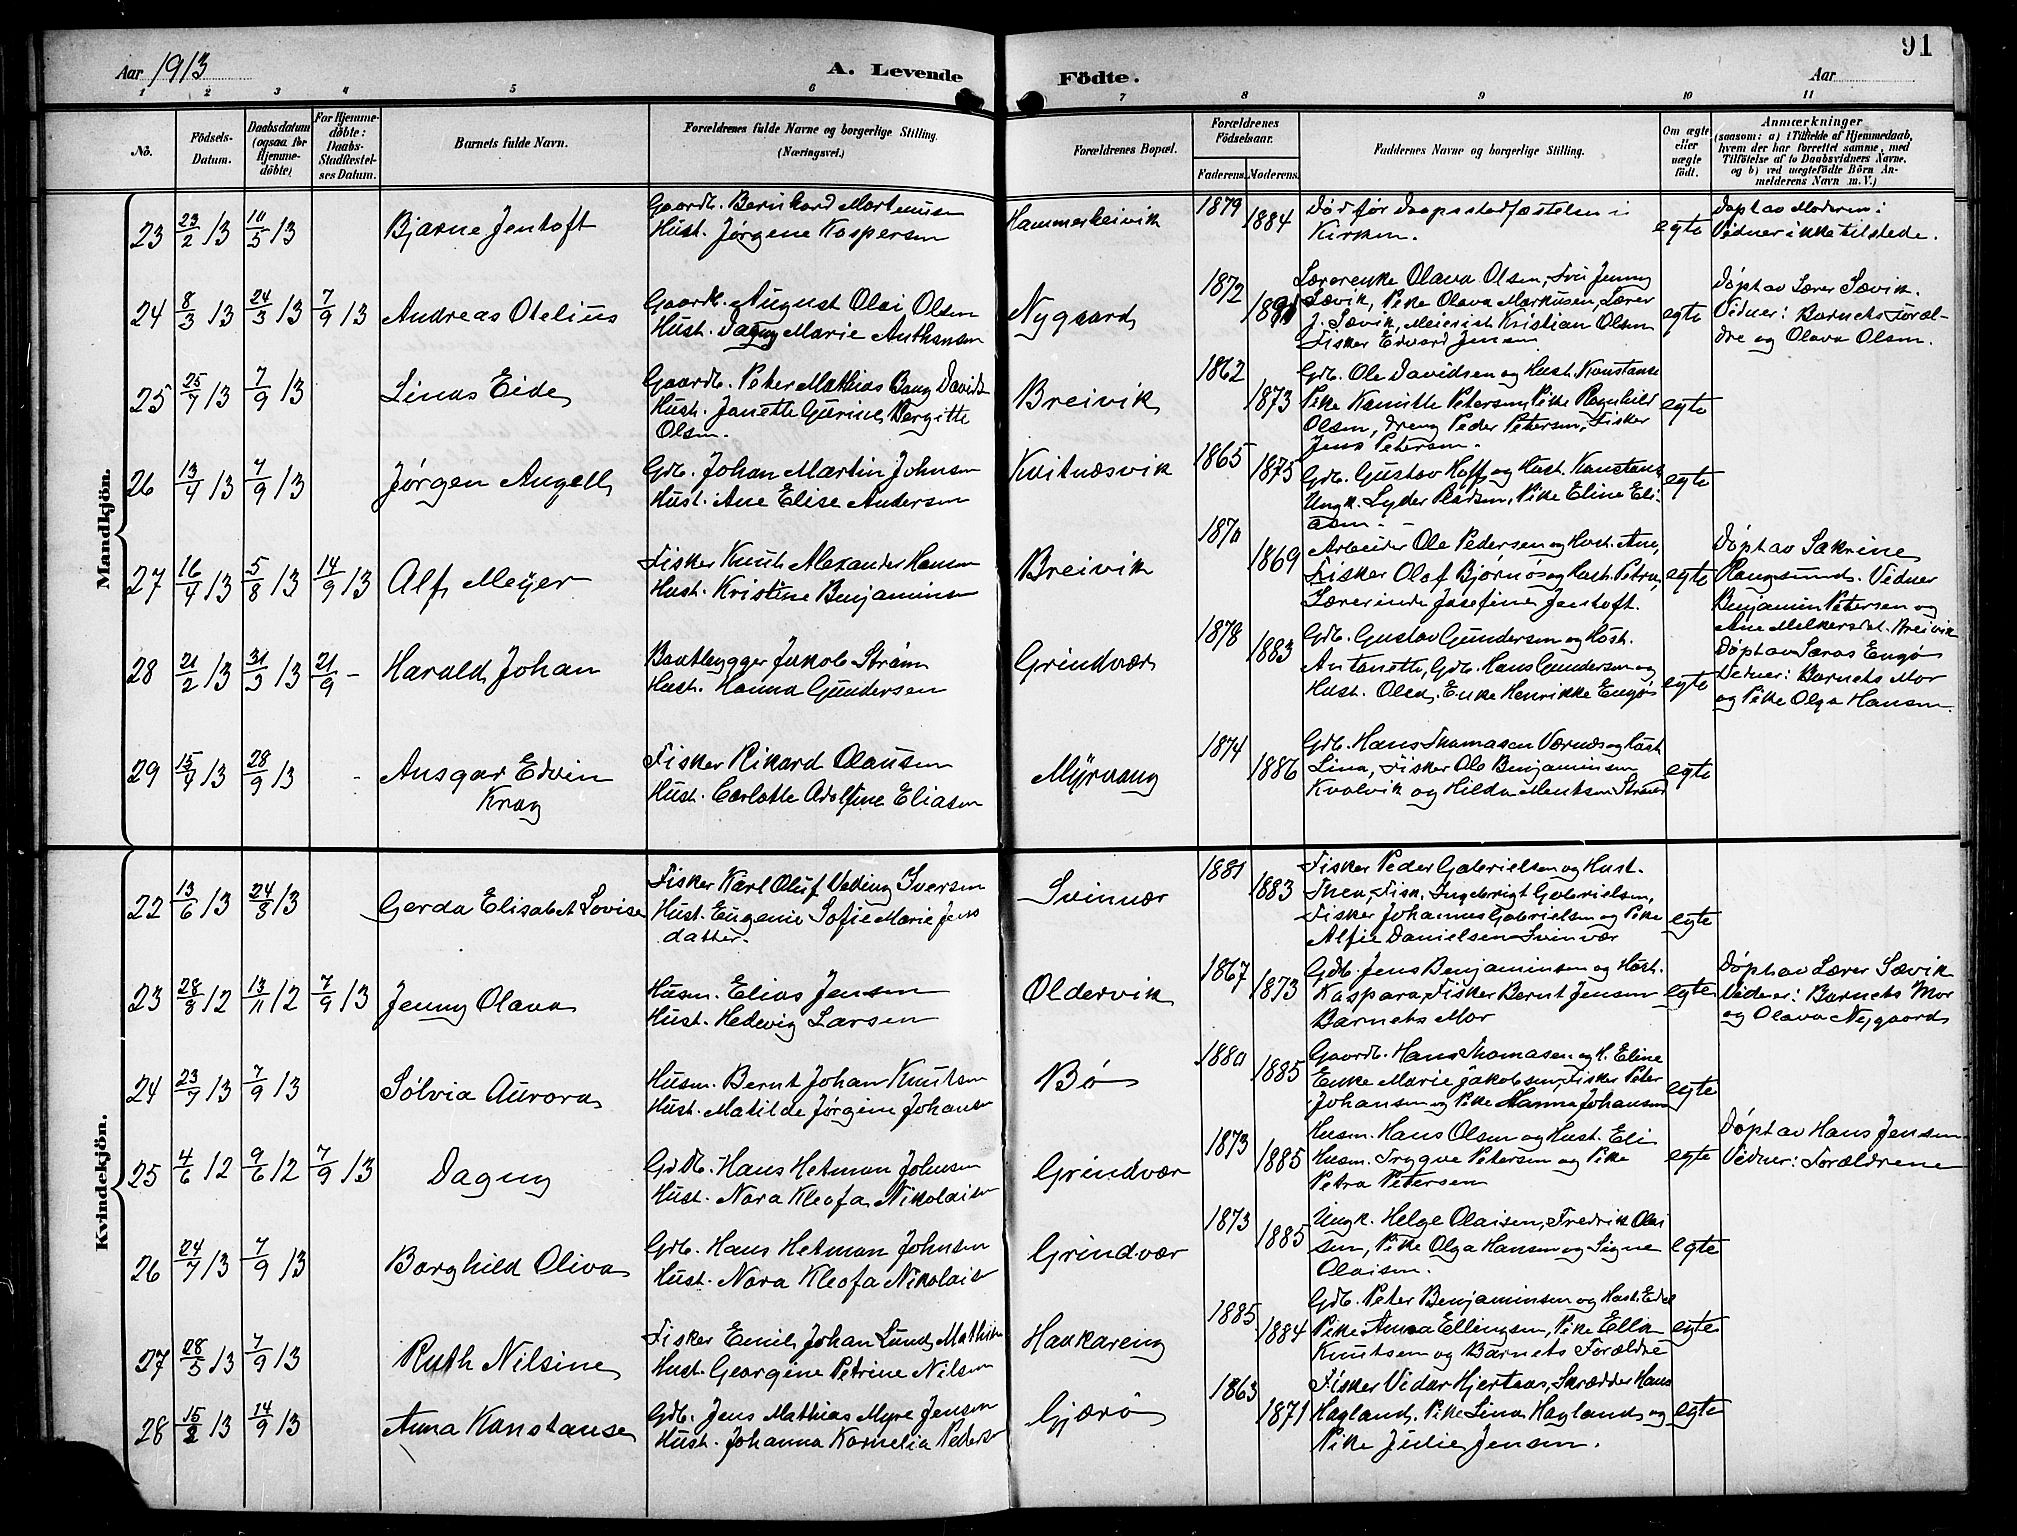 91
Aar 1913
A. Levende Födte.
Aar
1 2 3 4 5 6 7 8 9 10 11
Nö.
Födsels-Datum.
Daabsdatum (ogsaa for Hjemme-döbte)
For Hjemme-döbte: Daabs-Stadfæstel-ses Datum.
Barnets fulde Navn.
Forældrenes fulde Navne og borgerlige Stilling. (Næringsvei.)
Forældrenes Bopæl.
Forældrenes Födselsaar.
Faderens. Moderens.
Faddernes Navne og borgerlige Stilling.
Om ægte eller uægte födt.
Anmærkninger
(saasom: a) i Tilfælde af Hjemmedaab,
hvem der har forrettet samme, med
Tilföielse af to Daabsvidners Navne,
og b) ved uegteföde Börn An-
melderens Navn m. V.)
Mandkjön.
23 23/2 13 10/5 13 Bjarne Jentoft
Gaardb. Bernhard Martenusen
Hust. Jørgene Kaspersen
Hammerbeivik 1879 1884
Død før Daapsstadfæstelsen i
Kirken.
egte
Døpt av Moderen:
Vidner ikke tilstede.
24 8/3 13 24/3 13 7/9 13 Andreas Otelius
Gaardb. August Olai Olsen
Hust. Dagny Marie Anthonsen
Nygaard 1872
Lærerenke Olava Olsen, Fru Jenny
Sævik, Pike Olava Markusen, Lærer
J. Sævik, Meierist Kristian Olsen
Fisker Edvard Jensen
egte
Døpt av Lærer Sævik.
Vidner: Barnets Foræl-
dre og Olava Olsen.
25 25/7 13 7/9 13 Linas Eide
Gaardb. Peter Mathias Bang Davids
Hust. Janette Gurine Bergitte
Olsen.
Breivik 1862 1873
Gdb. Ole Davidsen og Hust. Konstanse
Pike Kamille Petersen, Pike Ragnhild
Olsen, Dreng Peder Petersen, Fisker
Jens Petersen.
egte
26 13/4 13 7/9 13 Jørgen Angell
Gdb. Johan Martin Johnsen
Hust. Ane Elise Andersen
Kvitnæsvik 1865 1875
Gdb. Gustav Hoff og Hust. Konstanse
Ungk. Lyder Pedersen, Pike Eline Eli-
asen.
egte
27 16/4 13 5/8 13 14/9 13 Alf Meyer
Fisker Knut Alexander Hansen
Hust. Kristine Benjaminsen
Breivik 1870 1869
Arbeider Ole Pedersen og Hust. Ane,
Fisker Olaf Bjørnøs og Hust. Petra,
Lærerinde Josefine Jentoft.
egte
Døpt av Sakrine
Hangsund. Vidner
Benjamin Petersen og
Ane Melkersdat. Breivik
28 21/2 13 31/3 13 21/9 - Harald Johan
Baatbygger Jakob Strøm
Hust. Hanna Gundersen
Grindvær 1878 1883
Gdb. Gustav Gundersen og Hust.
Antonette, Gdb. Hans Gundersen og
Hust. Olea, Enke Henrikke Engø
egte
Døpt av Saras Engø
Vidner: Barnets Mor
og Pike Olga Hansen.
29 15/7 13 28/9 13 - Ansgar Edvin
Krag
Fisker Rikard Olausen
Hust. Carlotte Adolfine Eliasen
Myrvang 1874 1886
Gdb. Hans Thomasen Værnes og Hust
Lina, Fisker Ole Benjaminsen
Kvalvik og Hilda Mentsen
egte
Kvindekjön.
22 13/6 13 24/8 13 Gerda Elisabet Lovise
Fisker Karl Oluf Veding Iversen
Hust. Eugenie Sofie Marie Jens
datter.
Svinvær 1881 1883
Fisker Peder Gabrielsen og Hust.
Thea, Fisk. Ingebrigt Gabrielsen,
Fisker Johannes Gabrielsen og Pike
Alfie Danielsen Svinvær
egte
23 28/8 12 13/11 12 7/9 13 Jenny Olava
Husm. Elias Jensen
Hust. Hedvig Larsen
Oldervik 1867 1873
Gdb. Jens Benjaminsen og Hust.
Kaspara, Fisker Bernt Jensen
Barnets Mor
egte
Døpt av Lærer Sævik
Vidner: Barnets Mor
og Olava Nygaard
24 23/7 13 7/9 13 Sølvia Aurora
Husm. Bernt Johan Knutsen
Hust. Matilde Jørgine Johansen
Bø 1880 1885
Gaardb. Hans Thomasen og H. Eline
Enke Marie Jakobsen, Fisker Peter
Johansen og Pike Hanna Johansen
egte
25 4/6 12 9/6 12 7/9 13 Dagny
Gdb. Hans Hetman Johnsen
Hust. Nora Kleofa Nikolaisen
Grindvær 1873 1885
Husm. Hans Olsen og Hust. Eli
Husm. Trygve Petersen og Pike
Petra Petersen
egte
Døpt av Hans Jensen
Vidner: Forældrene
26 24/7 13 7/9 13 Borghild Oliva
Gdb. Hans Hetman Johnsen
Hust. Nora Kleofa Nikolaisen
Grindvær 1873 1885
Ungk. Helge Olaisen, Fredrik Olai
sen, Pike Olga Hansen og Signe
Olaisen.
egte
27 28/5 13 7/9 13 Ruth Nilsine
Fisker Emil Johan Lund Mathisen
Hust. Georgine Petrine Nilsen
Haakareing 1885 1884
Gdb. Peter Benjaminsen og Hust. Edel
Pike Anna Ellingsen, Pike Ella
Knutsen og Barnets Forældre
egte
28 15/2 13 14/9 13 Anna Konstanse
Gdb. Jens Mathias Myre Jensen
Hust. Johanna Kornelia Peders
Gjærø 1863 1871
Fisker Vidar Hjertaas, Skrædder Hans
Hagland, Pike Lina Hagland og
Pike Julie Jensen.
egte